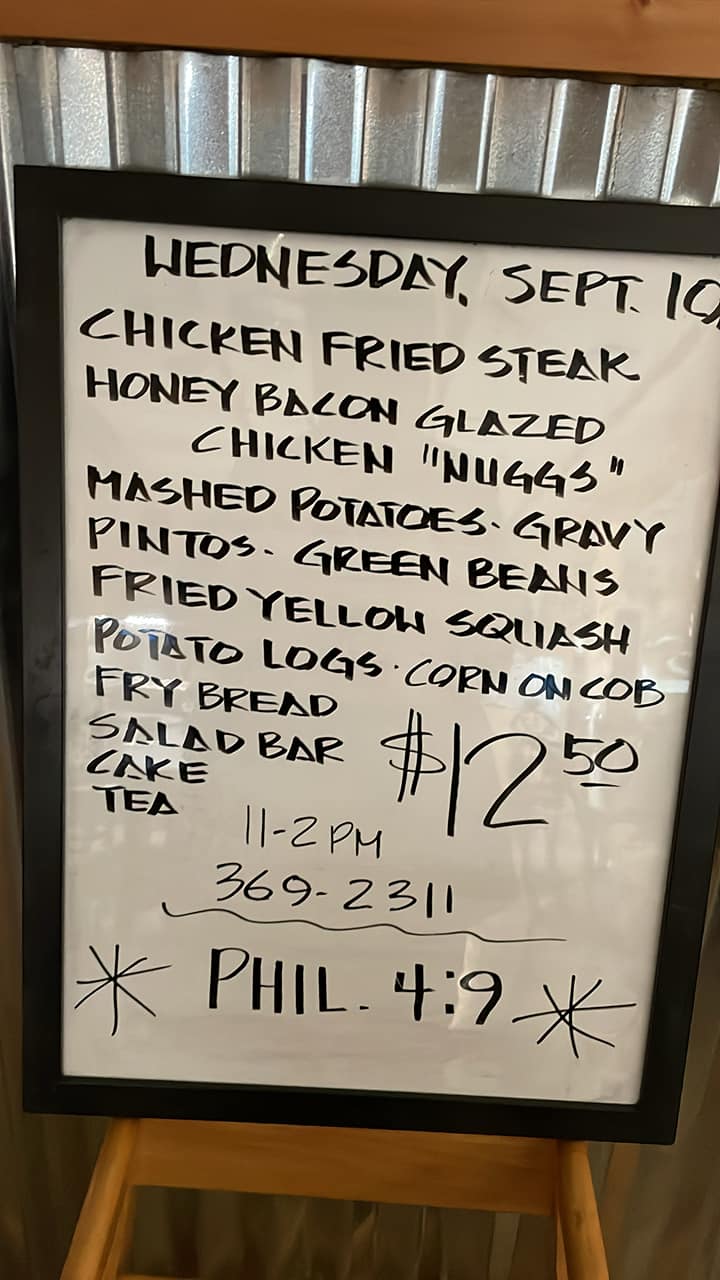 WEDNESDAY, SEPT. 10
CHICKEN FRIED STEAK
HONEY BACON GLAZED
CHICKEN "NUGGS"
MASHED POTATOES · GRAVY
PINTOS · GREEN BEANS
FRIED YELLOW SQUASH
POTATO LOGS · CORN ON COB
FRY BREAD
SALAD BAR
CAKE
TEA
$12 50
11-2 PM
369-2311
* PHIL. 4:9 *